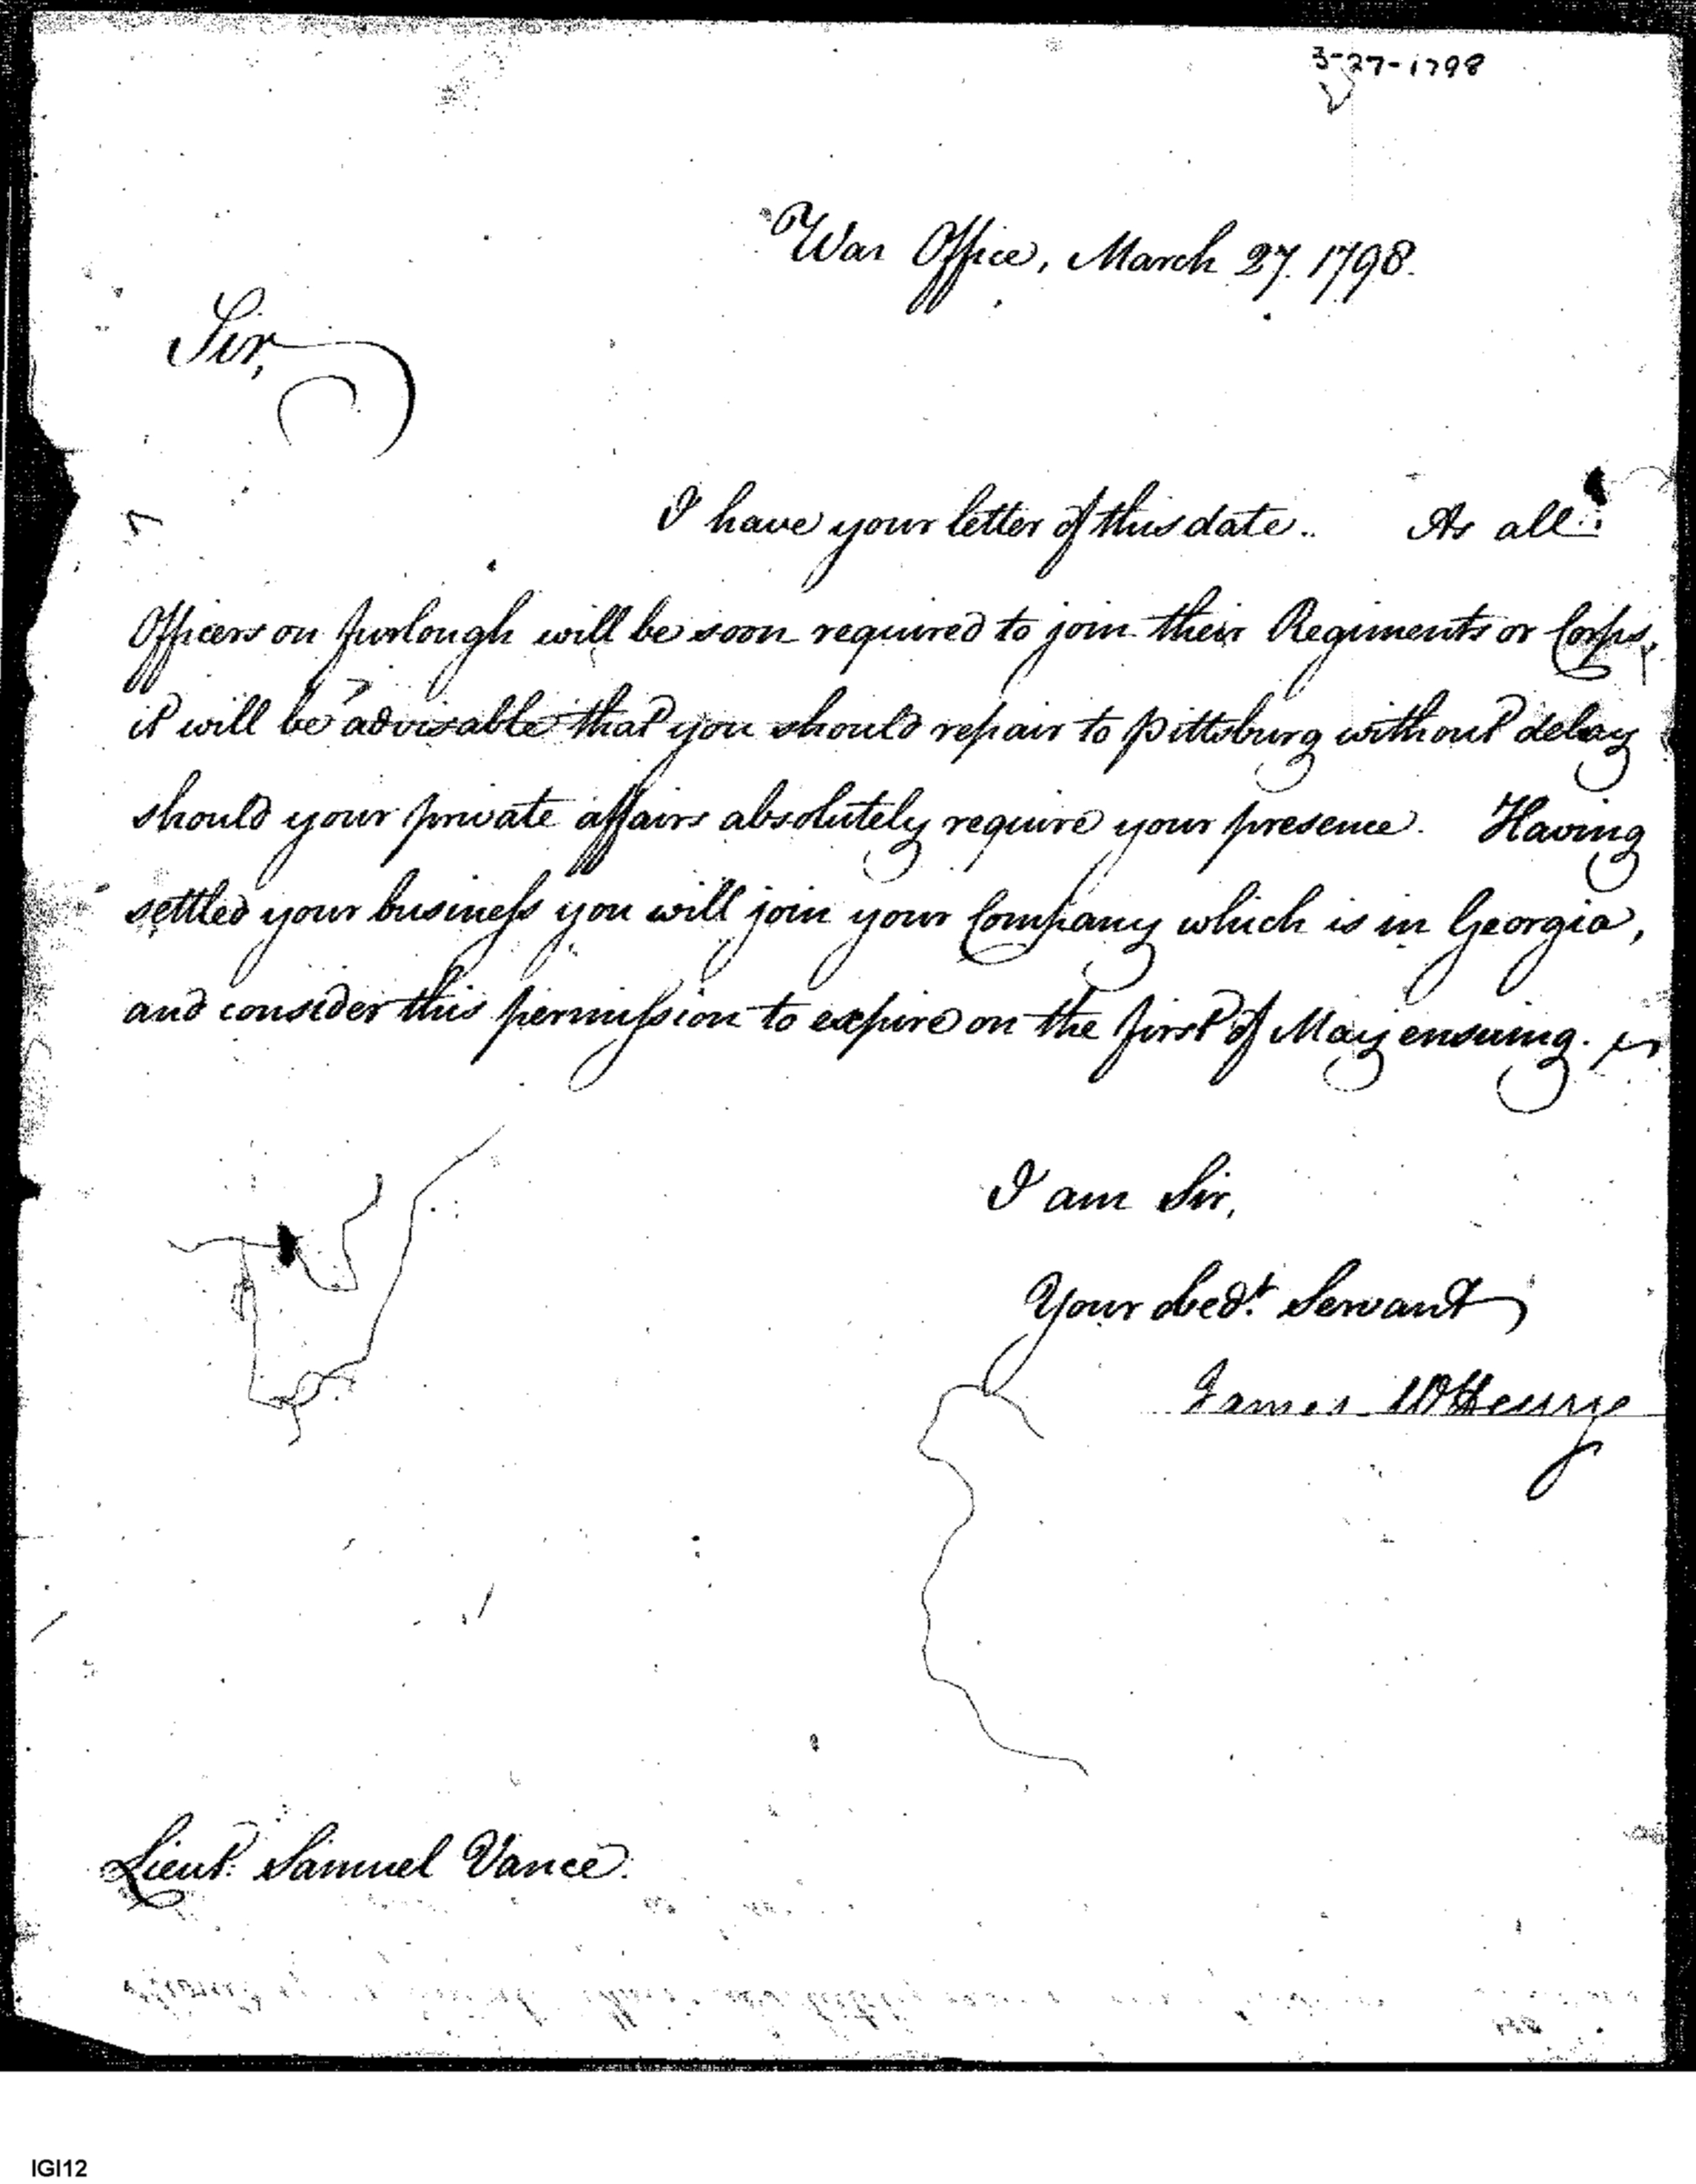 3-27-1798
War Office, March 27. 1798.
Sir,
I have your letter of this date. As all
Officers on furlough will be soon required to join their Regiments or Corps,
it will be advisable that you should repair to Pittsburg without delay
should your private affairs absolutely require your presence. Having
settled your business you will join your Company which is in Georgia,
and consider this permission to expire on the first of May ensuing.
I am Sir,
Your obed.t Servant
James McHenry
Lieut. Samuel Vance.
IGI12